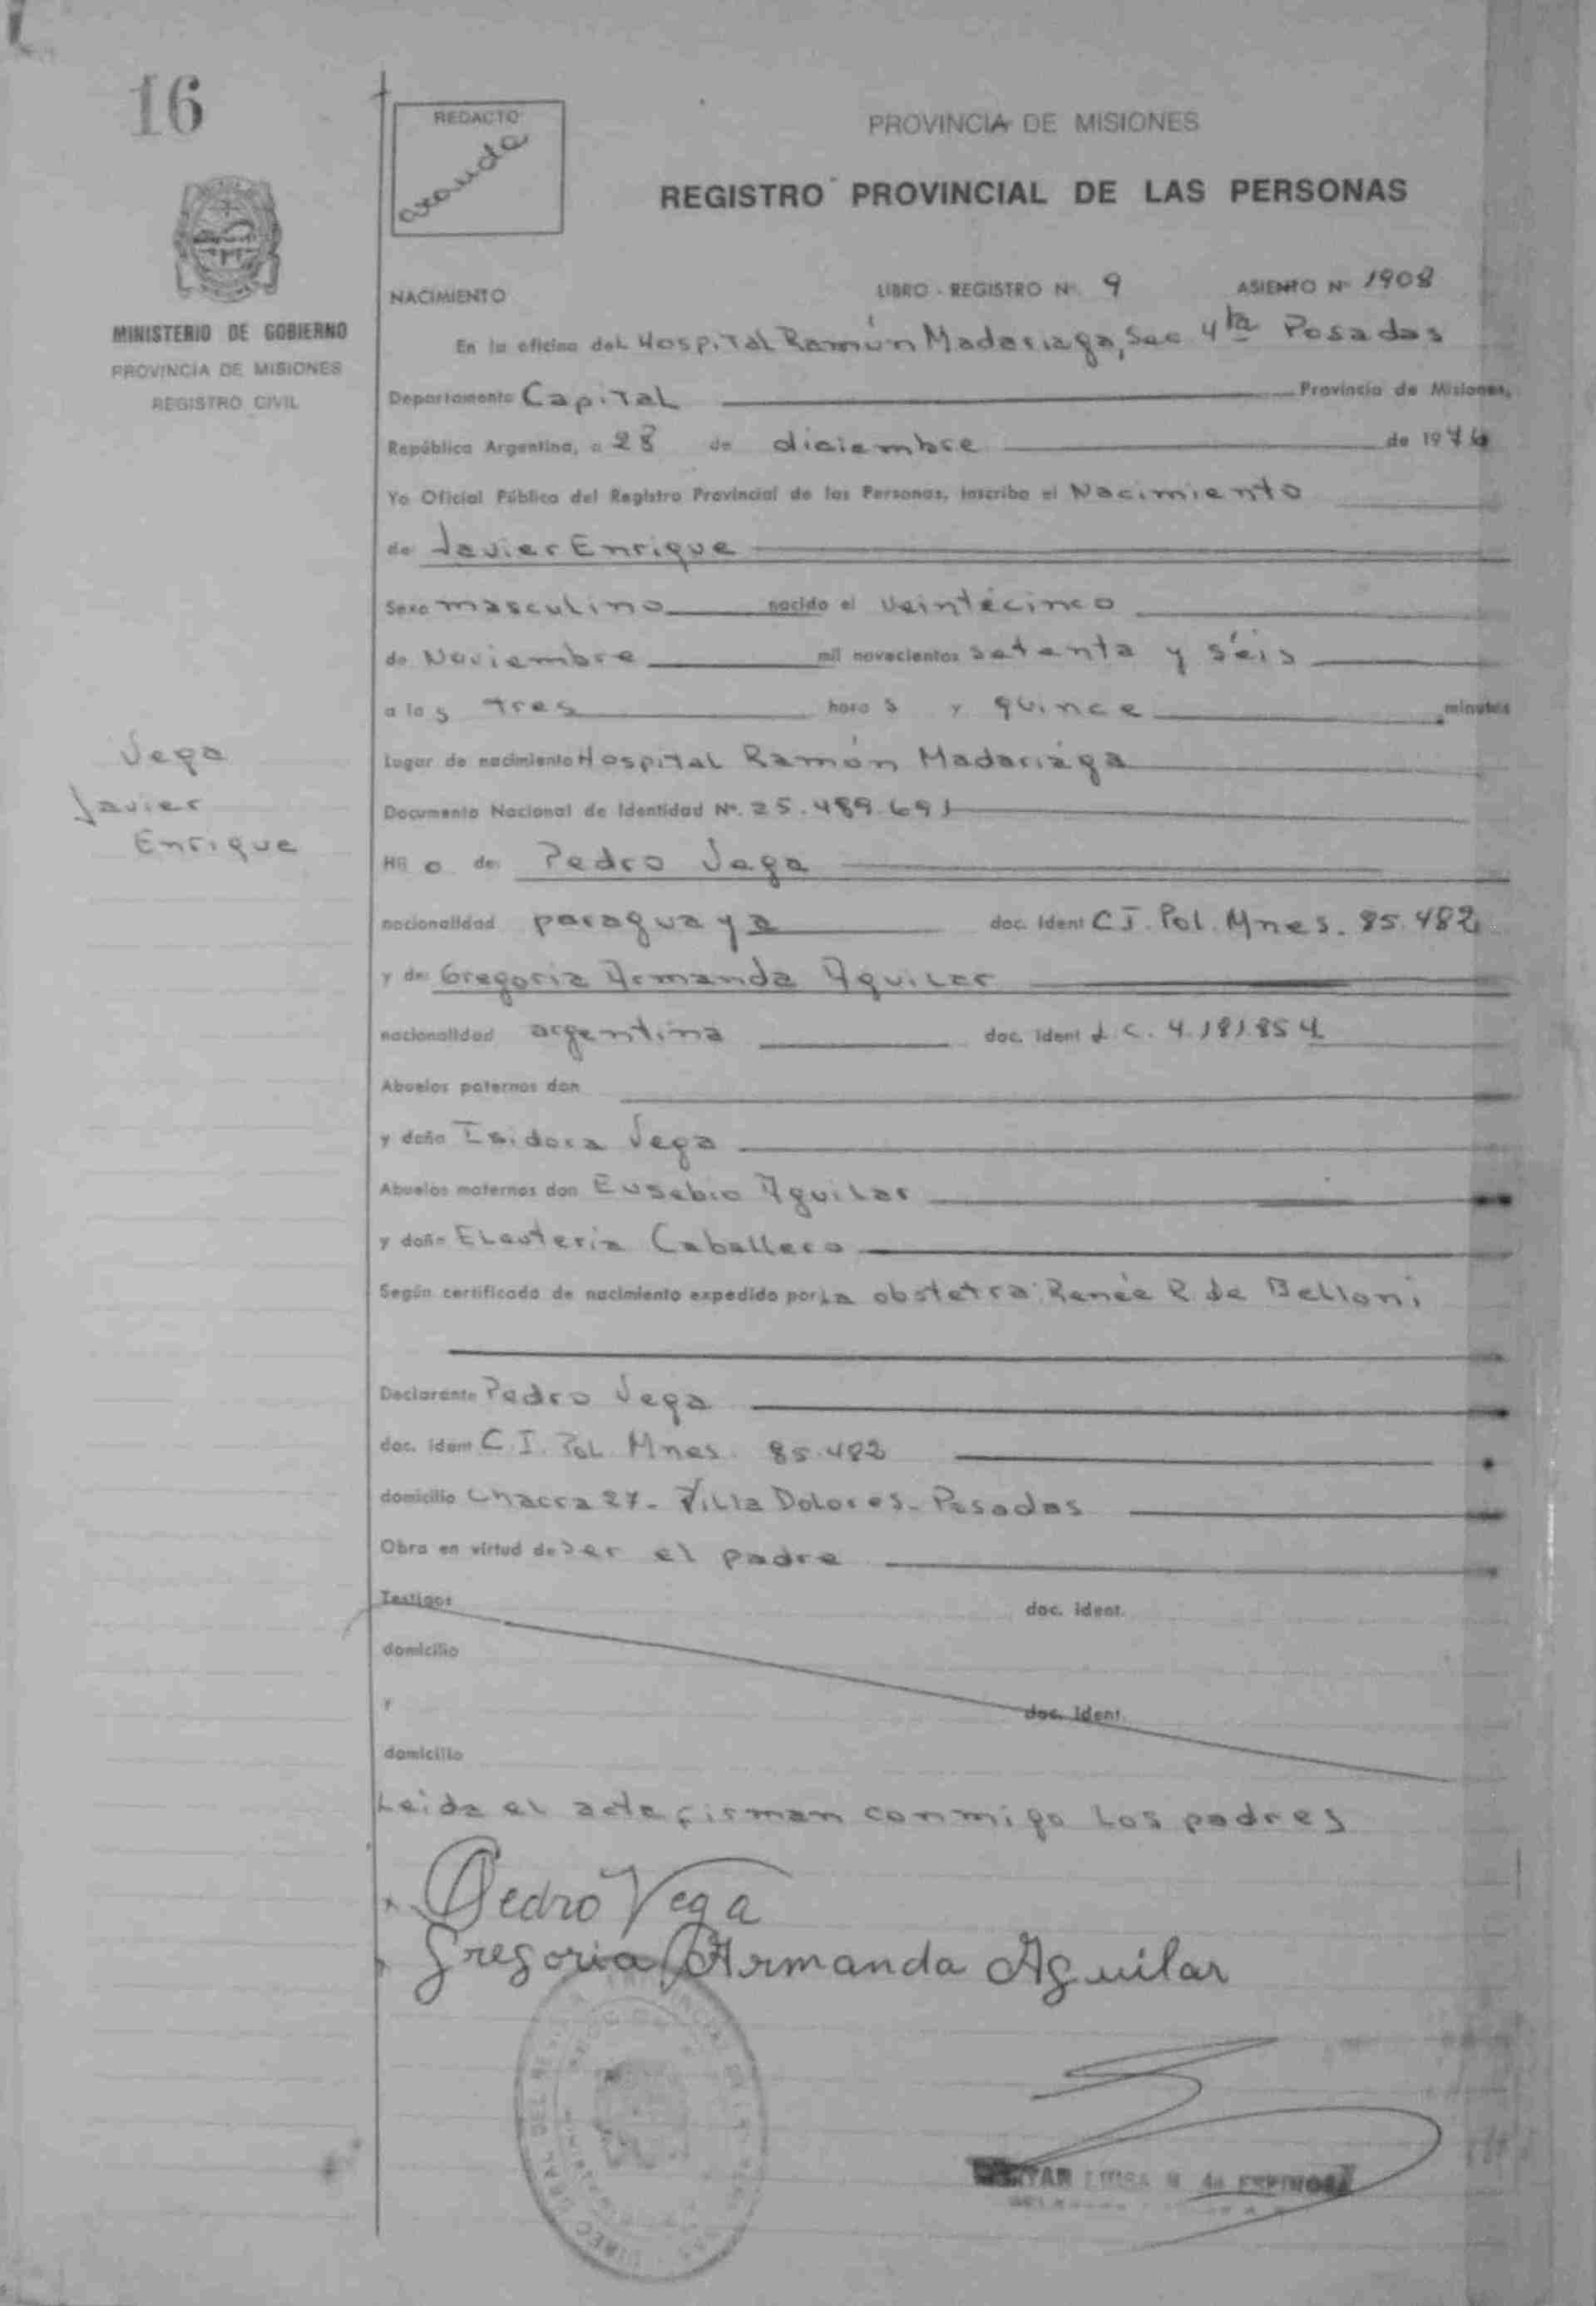 16
REDACTO
PROVINCIA DE MISIONES
REGISTRO PROVINCIAL DE LAS PERSONAS
MINISTERIO DE GOBIERNO
PROVINCIA DE MISIONES
REGISTRO CIVIL
NACIMIENTO LIBRO - REGISTRO Nº 9 ASIENTO Nº 1908
En la oficina del Hospital Ramón Madariaga, Sec 4ta Posadas
Departamento Capital Provincia de Misiones,
República Argentina, a 28 de diciembre de 1976
Yo Oficial Público del Registro Provincial de las Personas, inscribo el Nacimiento
de Javier Enrique
Sexo masculino nacido el veintécinco
de Noviembre mil novecientos setenta y séis
a las tres horas y quince minutos
Vega
Javier
Enrique
Lugar de nacimiento Hospital Ramón Madariaga
Documento Nacional de Identidad Nº. 25.489.691
Hijo de Pedro Vega
nacionalidad paraguaya doc. Ident C I. Pol. Mnes. 85.482
y de Gregoria Armanda Aguilar
nacionalidad argentina doc. Ident L C. 4.181.854
Abuelos paternos don
y doña Isidora Vega
Abuelos maternos don Eusebio Aguilar
y doña Eleuteria Caballero
Según certificado de nacimiento expedido por la obstetra Renée R de Belloni
Declarante Pedro Vega
doc. Ident C. I. Pol. Mnes. 85.482
domicilio Chacra 27- Villa Dolores- Posadas
Obra en virtud de ser el padre
Testigos doc. Ident.
domicilio
y doc. Ident.
domicilio
Leida el acta firman conmigo los padres
Pedro Vega
Gregoria Armanda Aguilar
LUISA M. de ESPINOSA